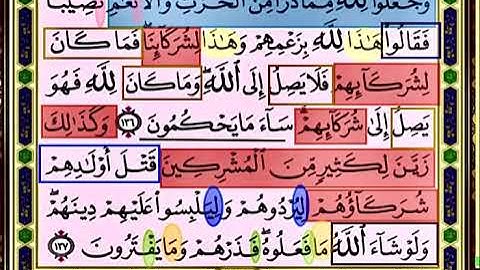 وَجَعَلُوا۟ لِلَّهِ مِمَّا ذَرَأَ مِنَ ٱلْحَرْثِ وَٱلْأَنْعَٰمِ نَصِيبًا
فَقَالُوا۟ هَٰذَا لِلَّهِ بِزَعْمِهِمْ وَهَٰذَا لِشُرَكَآئِنَا ۖ فَمَا كَانَ
لِشُرَكَآئِهِمْ فَلَا يَصِلُ إِلَى ٱللَّهِ ۖ وَمَا كَانَ لِلَّهِ فَهُوَ
يَصِلُ إِلَىٰ شُرَكَآئِهِمْ ۗ سَآءَ مَا يَحْكُمُونَ ١٣٦ وَكَذَٰلِكَ
زَيَّنَ لِكَثِيرٍ مِّنَ ٱلْمُشْرِكِينَ قَتْلَ أَوْلَٰدِهِمْ
شُرَكَآؤُهُمْ لِيُرْدُوهُمْ وَلِيَلْبِسُوا۟ عَلَيْهِمْ دِينَهُمْ ۖ
وَلَوْ شَآءَ ٱللَّهُ مَا فَعَلُوهُ ۖ فَذَرْهُمْ وَمَا يَفْتَرُونَ ١٣٧